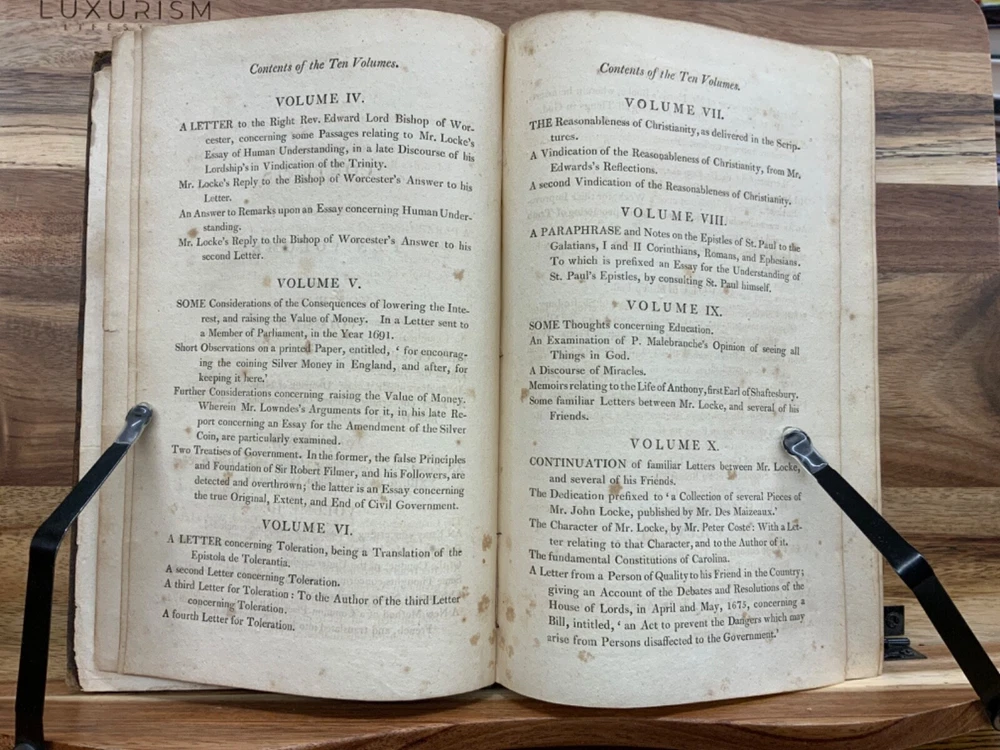 LUXURISM
Contents of the Ten Volumes.
VOLUME IV.
A LETTER to the Right Rev. Edward Lord Bishop of Wor-
cester, concerning some Passages relating to Mr. Locke's
Essay of Human Understanding, in a late Discourse of his
Lordship's in Vindication of the Trinity.
Mr. Locke's Reply to the Bishop of Worcester's Answer to his
Letter.
An Answer to Remarks upon an Essay concerning Human Under-
standing.
Mr. Locke's Reply to the Bishop of Worcester's Answer to his
second Letter.
VOLUME V.
SOME Considerations of the Consequences of lowering the Inte-
rest, and raising the Value of Money. In a Letter sent to
a Member of Parliament, in the Year 1691.
Short Observations on a printed Paper, entitled, ‘ for encourag-
ing the coining Silver Money in England, and after, for
keeping it here.’
Further Considerations concerning raising the Value of Money.
Wherein Mr. Lowndes's Arguments for it, in his late Re-
port concerning an Essay for the Amendment of the Silver
Coin, are particularly examined.
Two Treatises of Government. In the former, the false Principles
and Foundation of Sir Robert Filmer, and his Followers, are
detected and overthrown; the latter is an Essay concerning
the true Original, Extent, and End of Civil Government.
VOLUME VI.
A LETTER concerning Toleration, being a Translation of the
Epistola de Tolerantia.
A second Letter concerning Toleration.
A third Letter for Toleration: To the Author of the third Letter
concerning Toleration.
A fourth Letter for Toleration.
Contents of the Ten Volumes.
VOLUME VII.
THE Reasonableness of Christianity, as delivered in the Scrip-
tures.
A Vindication of the Reasonableness of Christianity, from Mr.
Edwards's Reflections.
A second Vindication of the Reasonableness of Christianity.
VOLUME VIII.
A PARAPHRASE and Notes on the Epistles of St. Paul to the
Galatians, I and II Corinthians, Romans, and Ephesians.
To which is prefixed an Essay for the Understanding of
St. Paul's Epistles, by consulting St. Paul himself.
VOLUME IX.
SOME Thoughts concerning Education.
An Examination of P. Malebranche's Opinion of seeing all
Things in God.
A Discourse of Miracles.
Memoirs relating to the Life of Anthony, first Earl of Shaftesbury.
Some familiar Letters between Mr. Locke, and several of his
Friends.
VOLUME X.
CONTINUATION of familiar Letters between Mr. Locke,
and several of his Friends.
The Dedication prefixed to ‘ a Collection of several Pieces of
Mr. John Locke, published by Mr. Des Maizeaux.’
The Character of Mr. Locke, by Mr. Peter Coste: With a Let-
ter relating to that Character, and to the Author of it.
The fundamental Constitutions of Carolina.
A Letter from a Person of Quality to his Friend in the Country;
giving an Account of the Debates and Resolutions of the
House of Lords, in April and May, 1675, concerning a
Bill, intitled, ‘ an Act to prevent the Dangers which may
arise from Persons disaffected to the Government.’